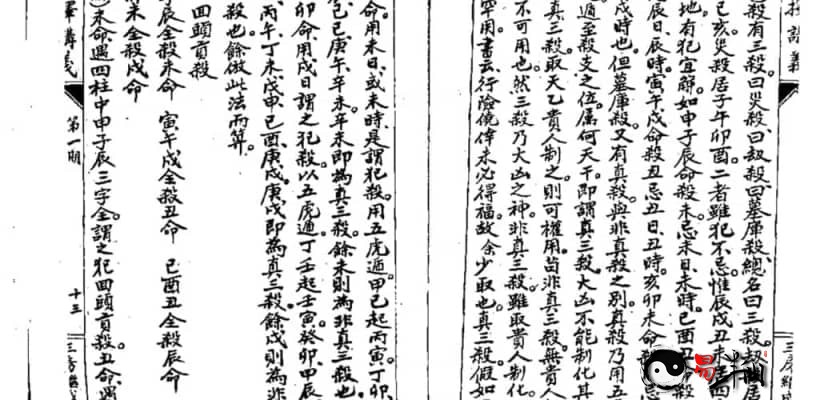 擇講義
殺有三殺。曰災殺。曰劫殺。曰墓庫殺。總名曰三殺。劫殺居
巳亥。災殺居子午卯酉。二者雖犯不忌。惟辰戌丑未居四
地。有犯宜辭。如申子辰命殺未。忌未日。未時。巳酉丑命殺
辰日。辰時。寅午戌命殺丑。忌丑日。丑時。亥卯未命殺
戌時也。但墓庫殺。又有真殺。與非真殺之別。真殺乃用五
遁至殺支之位。屬何天干。即謂真三殺。大凶不能制化。其
真三殺。取天乙貴人制之。則可權用。苟非真三殺。無貴人
不可用也。然三殺乃大凶之神。非真三殺。雖取貴人制化
罕用。書云。行險僥倖。未必得福。故余少取也。真三殺。假如
三房
命。用未日。或未時。是謂犯殺。用五虎遁甲己起丙寅。丁卯
己巳。庚午。辛未。辛未即為真三殺。餘未則為非真三殺也
卯命。用戌日謂之犯殺。以五虎遁丁壬起壬寅。癸卯。甲辰
丙午。丁未。戊申。己酉。庚戌。庚戌即為真三殺。餘戌則為非
殺也。餘倣此法而算。
四頭貢殺
子辰全殺未命 寅午戌全殺丑命 巳酉丑全殺辰命
未全殺戌命
未命遇四柱中申子辰三字全。謂之犯四頭貢殺。丑命遇
講義 第一期 十三 三房
易